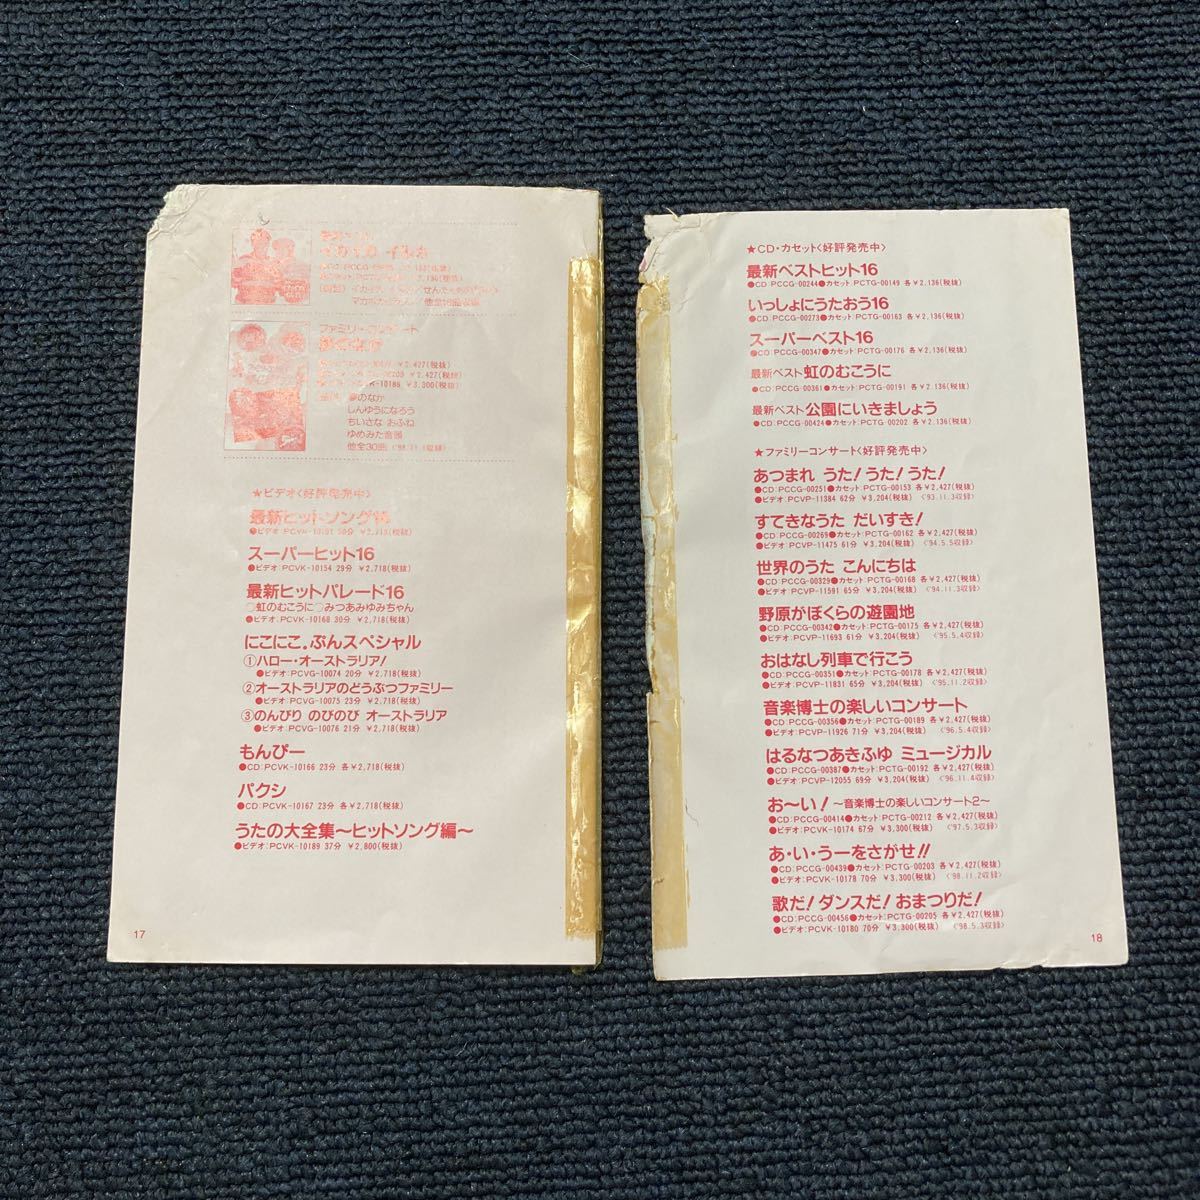 イカイカ イルカ
マカホカミラクル／他全16曲収録
ファミリーコンサート
￥2,427(税抜)
￥2,427(税抜)
PCVK-10186 ￥3,300(税抜)
夢のなか
しんゆうになろう
ちいさな おふね
ゆめみた音頭
他全30曲 <'98.11.1収録>
★ビデオ<好評発売中>
最新ヒットソング16
●ビデオ:PCVK-10191 30分 ￥2,718(税抜)
スーパーヒット16
●ビデオ:PCVK-10154 29分 ￥2,718(税抜)
最新ヒットパレード16
○虹のむこうに○みつあみゆみちゃん
●ビデオ:PCVK-10168 30分 ￥2,718(税抜)
にこにこ。ぷんスペシャル
①ハロー・オーストラリア!
●ビデオ:PCVG-10074 20分 ￥2,718(税抜)
②オーストラリアのどうぶつファミリー
●ビデオ:PCVG-10075 23分 ￥2,718(税抜)
③のんびり のびのび オーストラリア
●ビデオ:PCVG-10076 21分 ￥2,718(税抜)
もんぴー
●CD:PCVK-10166 23分 各￥2,718(税抜)
パクシ
●CD:PCVK-10167 23分 各￥2,718(税抜)
うたの大全集〜ヒットソング編〜
●ビデオ:PCVK-10189 37分 ￥2,800(税抜)
17
★CD・カセット<好評発売中>
最新ベストヒット16
●CD:PCCG-00244●カセット:PCTG-00149 各￥2,136(税抜)
いっしょにうたおう16
●CD:PCCG-00273●カセット:PCTG-00163 各￥2,136(税抜)
スーパーベスト16
●CD:PCCG-00347●カセット:PCTG-00176 各￥2,136(税抜)
最新ベスト 虹のむこうに
●CD:PCCG-00361●カセット:PCTG-00191 各￥2,136(税抜)
最新ベスト 公園にいきましょう
●CD:PCCG-00424●カセット:PCTG-00202 各￥2,136(税抜)
★ファミリーコンサート<好評発売中>
あつまれ うた!うた!うた!
●CD:PCCG-00251●カセット:PCTG-00153 各￥2,427(税抜)
●ビデオ:PCVP-11384 62分 ￥3,204(税抜) <'93.11.3収録>
すてきなうた だいすき!
●CD:PCCG-00269●カセット:PCTG-00162 各￥2,427(税抜)
●ビデオ:PCVP-11475 61分 ￥3,204(税抜) <'94.5.5収録>
世界のうた こんにちは
●CD:PCCG-00329●カセット:PCTG-00168 各￥2,427(税抜)
●ビデオ:PCVP-11591 65分 ￥3,204(税抜) <'94.11.3収録>
野原がぼくらの遊園地
●CD:PCCG-00342●カセット:PCTG-00175 各￥2,427(税抜)
●ビデオ:PCVP-11693 61分 ￥3,204(税抜) <'95.5.4収録>
おはなし列車で行こう
●CD:PCCG-00351●カセット:PCTG-00178 各￥2,427(税抜)
●ビデオ:PCVP-11831 65分 ￥3,204(税抜) <'95.11.2収録>
音楽博士の楽しいコンサート
●CD:PCCG-00356●カセット:PCTG-00189 各￥2,427(税抜)
●ビデオ:PCVP-11926 71分 ￥3,204(税抜) <'96.5.4収録>
はるなつあきふゆ ミュージカル
●CD:PCCG-00387●カセット:PCTG-00192 各￥2,427(税抜)
●ビデオ:PCVP-12055 69分 ￥3,204(税抜) <'96.11.4収録>
お〜い! 〜音楽博士の楽しいコンサート2〜
●CD:PCCG-00414●カセット:PCTG-00212 各￥2,427(税抜)
●ビデオ:PCVK-10174 67分 ￥3,300(税抜) <'97.5.3収録>
あ・い・うーをさがせ!!
●CD:PCCG-00439●カセット:PCTG-00203 各￥2,427(税抜)
●ビデオ:PCVK-10178 70分 ￥3,300(税抜) <'98.11.2収録>
歌だ!ダンスだ!おまつりだ!
●CD:PCCG-00456●カセット:PCTG-00205 各￥2,427(税抜)
●ビデオ:PCVK-10180 70分 ￥3,300(税抜) <'98.5.3収録>
18